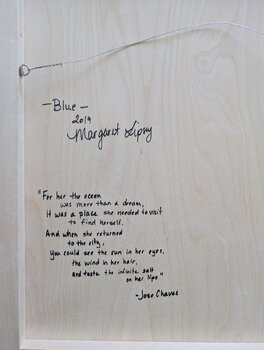 - Blue -
2019
Margaret Lipsey
"For her the ocean
was more than a dream,
it was a place she needed to visit
to find herself.
And when she returned
to the city,
You could see the sun in her eyes,
the wind in her hair,
and taste the infinite salt
on her lips"
- Jose Chaves